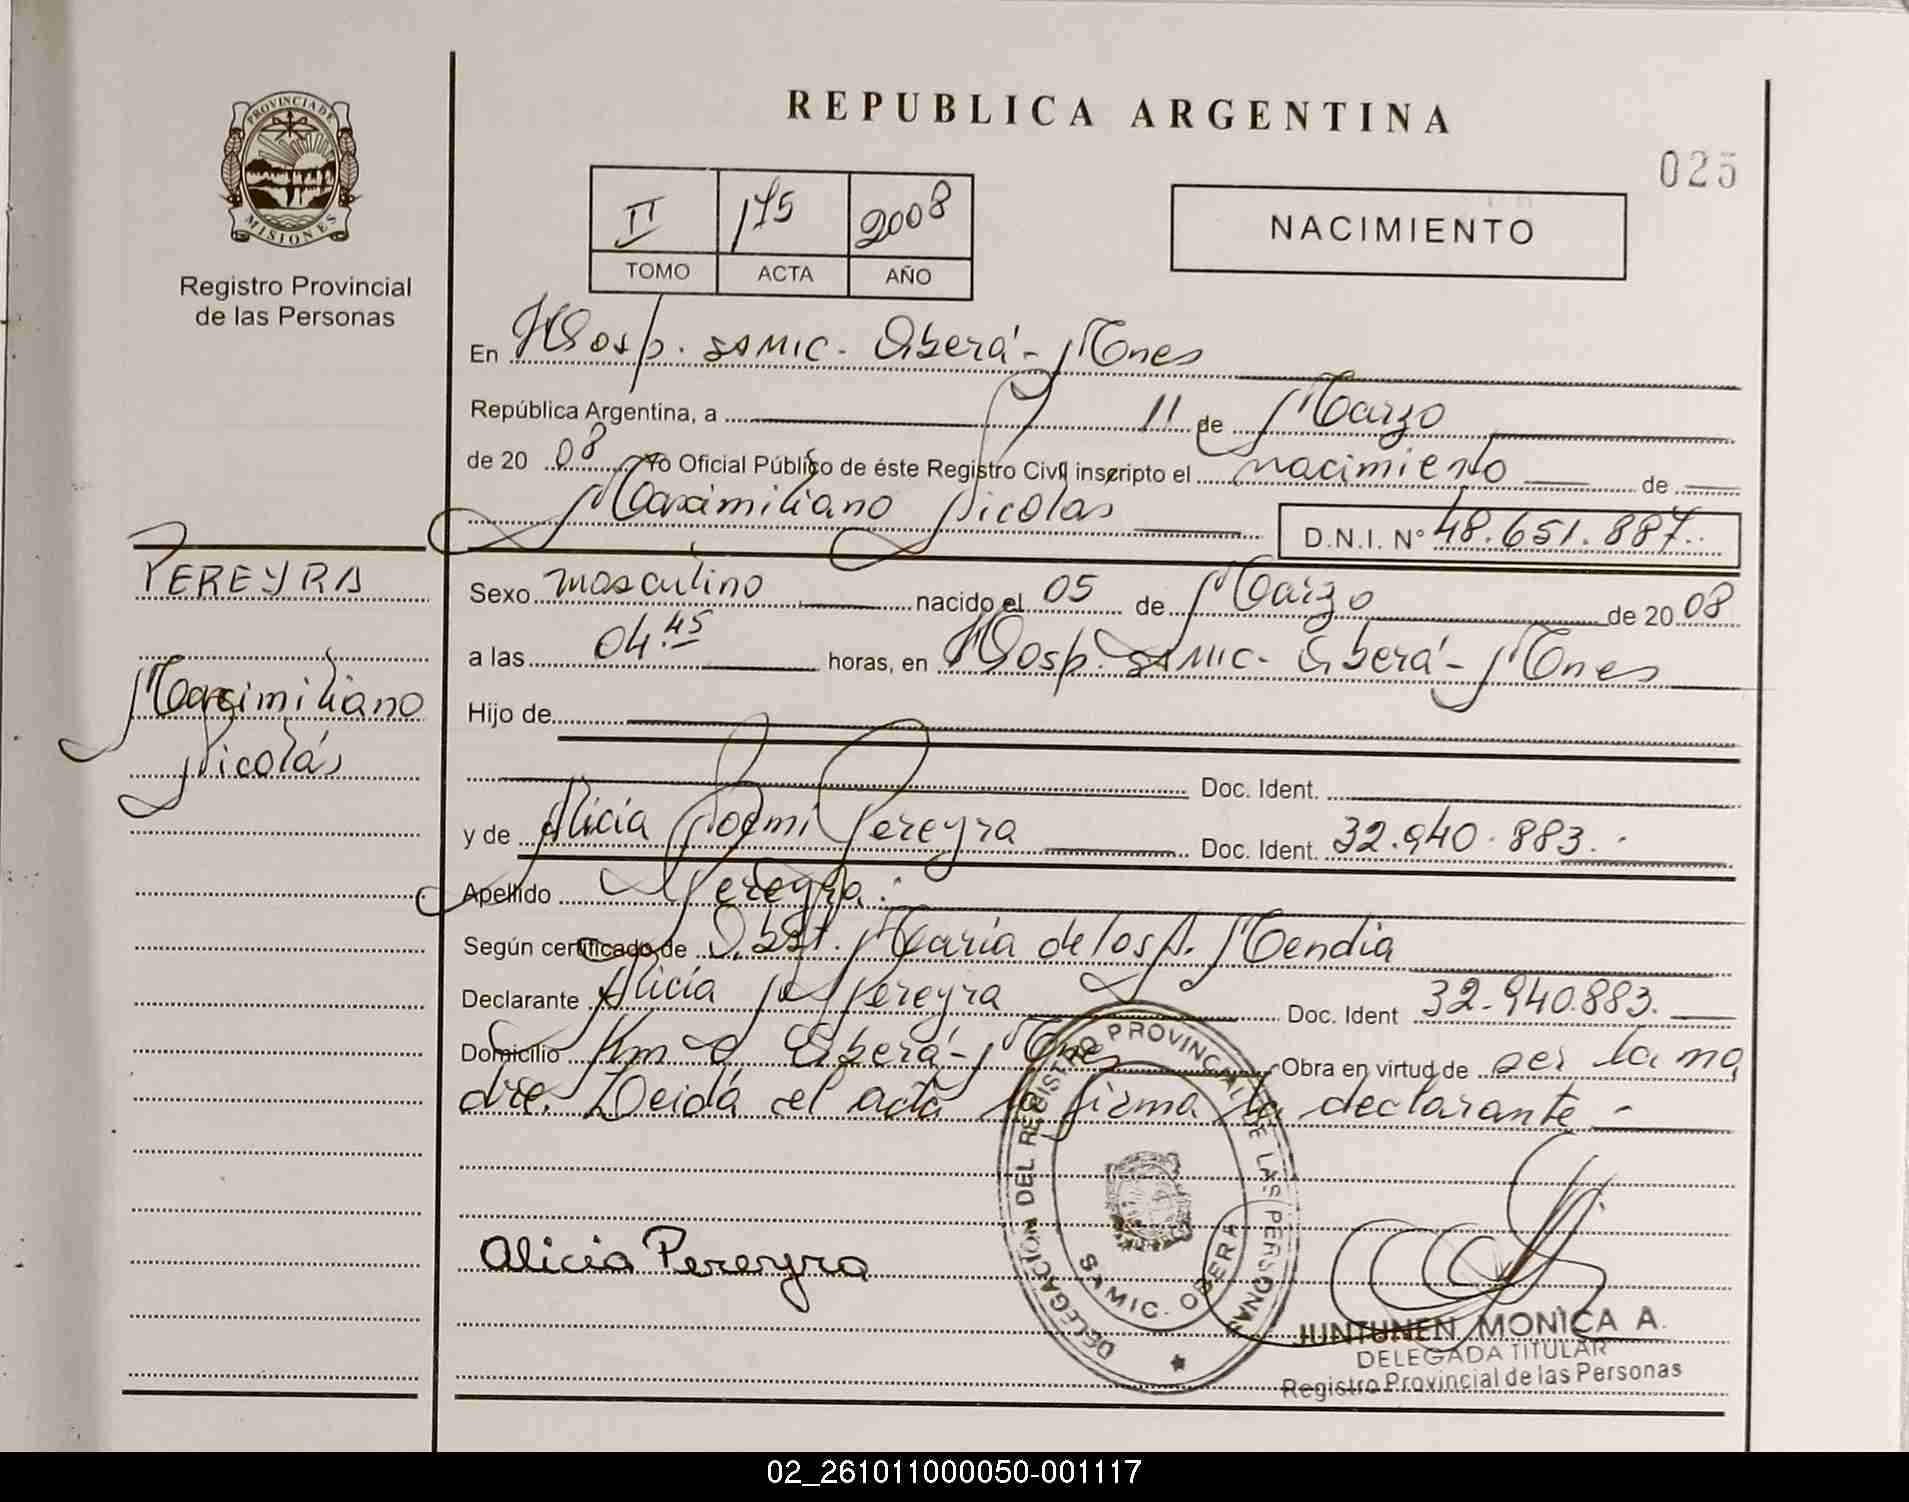 PROVINCIA DE
MISIONES
Registro Provincial
de las Personas
REPUBLICA ARGENTINA
025
II 175 2008
TOMO ACTA AÑO
NACIMIENTO
En Hosp. SAMIC - Oberá - Mnes
República Argentina, a 11 de Marzo
de 2008 Yo Oficial Público de éste Registro Civil inscripto el nacimiento de
Maximiliano Nicolas D.N.I. N° 48.651.887
PEREYRA
Maximiliano
Nicolás
Sexo masculino nacido el 05 de Marzo de 2008
a las 04.45 horas, en Hosp. SAMIC - Oberá - Mnes
Hijo de
Doc. Ident.
y de Alicia Noemi Pereyra Doc. Ident. 32.940.883.
Apellido Pereyra.
Según certificado de Obst. Maria de los A. Mendia
Declarante Alicia N. Pereyra Doc. Ident 32.940.883.
Domicilio Km Oberá - Mnes Obra en virtud de ser la ma
dre. Leida el acta la firma la declarante -
DELEGACIÓN DEL REGISTRO PROVINCIAL DE LAS PERSONAS
SAMIC. OBERA
Alicia Pereyra
JUNTUNEN MONICA A.
DELEGADA TITULAR
Registro Provincial de las Personas
02_261011000050-001117